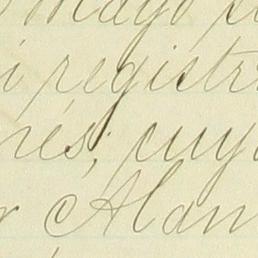 Mayo
i registr
nés; cuya
r Alam